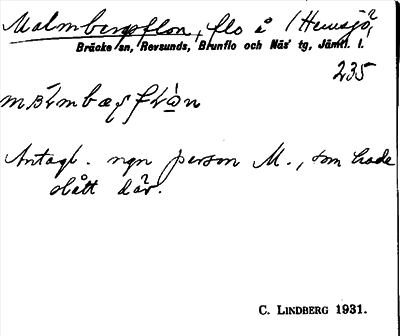 Malmbergsflon, flo å Hemsjö,
Bräcke sn, Revsunds, Brunflo och Näs' tg, Jämtl. l.
235
Antagl. ngn person M., som hade
slått där.
C. LINDBERG 1931.